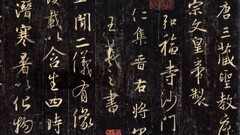 唐三藏聖教序
宗文皇帝製
弘福寺沙門
仁集晉右將
王羲之書
聞二儀有像
覆載以含生四時
潛寒暑以化物